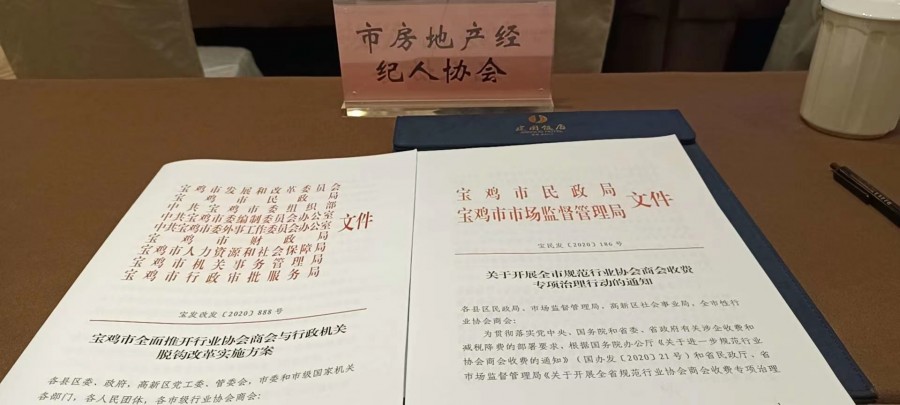 市房地产经
纪人协会
建国饭店
宝鸡市发展和改革委员会
宝鸡市民政局
中共宝鸡市委组织部
中共宝鸡市委编制委员会办公室
中共宝鸡市委外事工作委员会办公室
宝鸡市财政局
宝鸡市人力资源和社会保障局
宝鸡市机关事务管理局
宝鸡市行政审批服务局
文件
宝发改发〔2020〕888号
宝鸡市全面推开行业协会商会与行政机关
脱钩改革实施方案
各县区委、政府,高新区党工委、管委会,市委和市级国家机关
各部门,各人民团体,各市级行业协会商会:
宝鸡市民政局
宝鸡市市场监督管理局
文件
宝民发〔2020〕186号
关于开展全市规范行业协会商会收费
专项治理行动的通知
各县区民政局、市场监督管理局,高新区社会事业局,全市性行
业协会商会:
为贯彻落实党中央、国务院和省委、省政府有关涉企收费和
减税降费的部署要求,根据国务院办公厅《关于进一步规范行业
协会商会收费的通知》(国办发〔2020〕21号)和省民政厅、省
市场监督管理局《关于开展全省规范行业协会商会收费专项治理